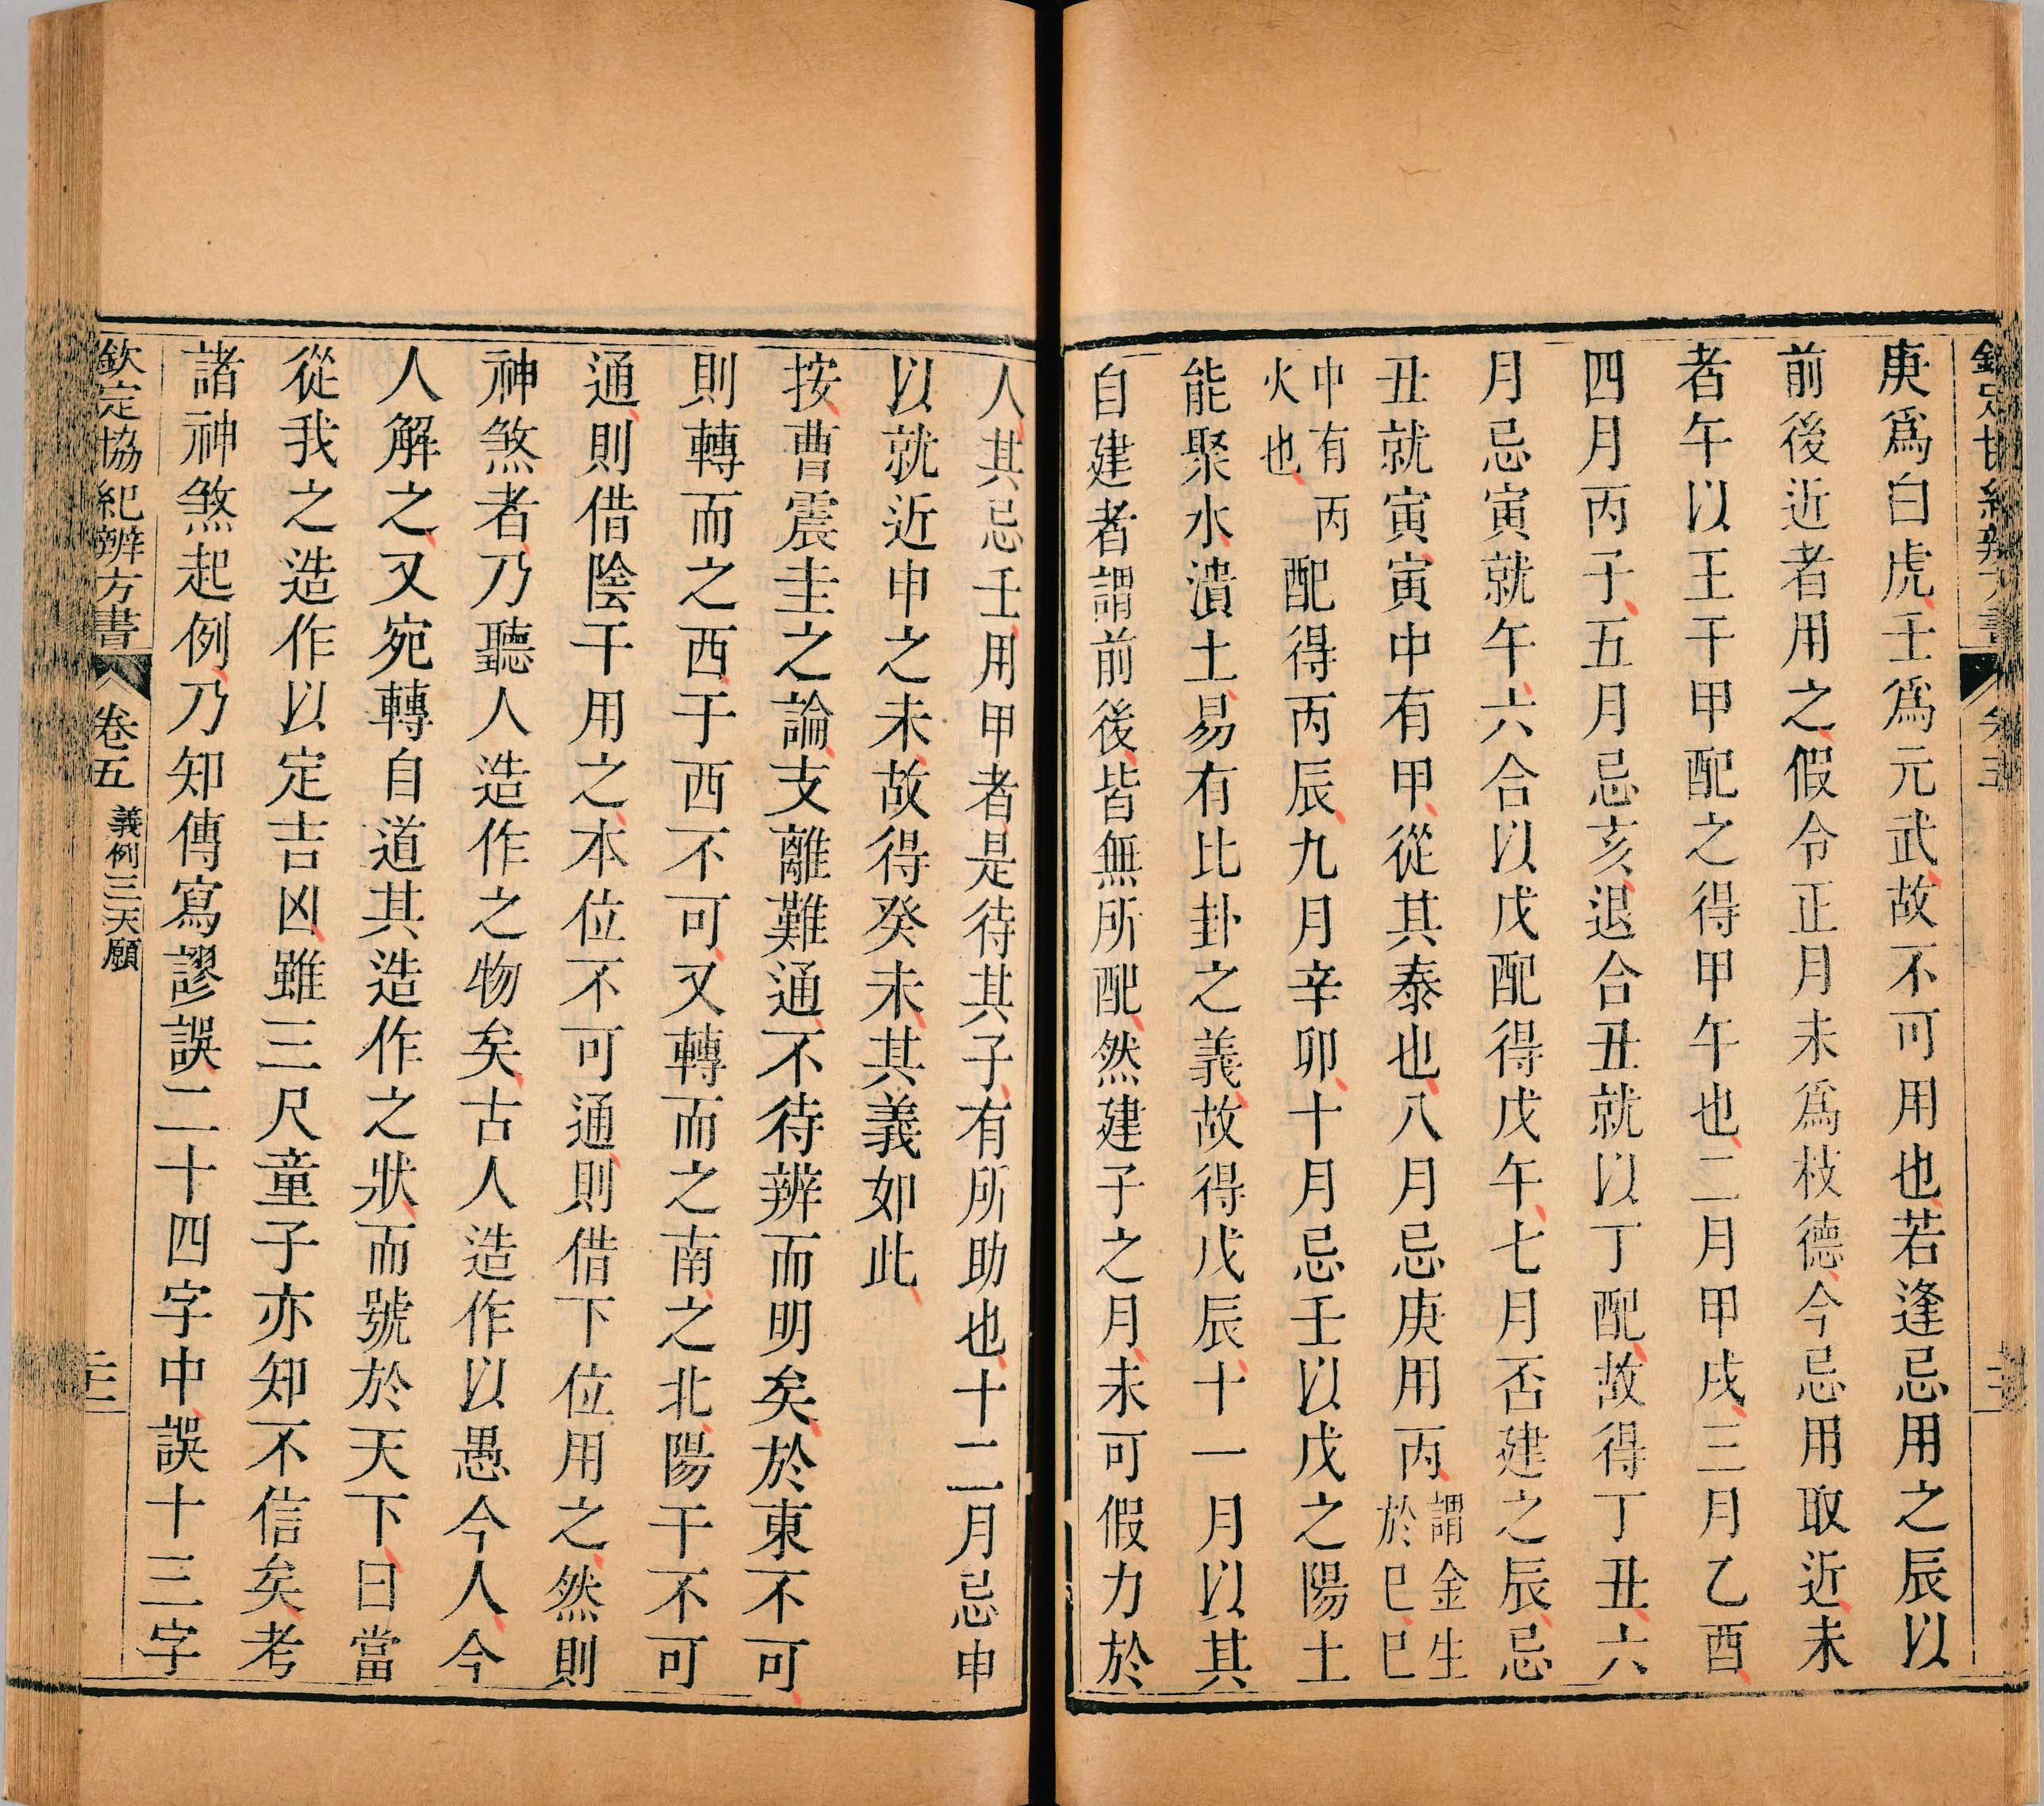 庚爲白虎壬爲元武故不可用也若逢忌用之辰以
前後近者用之假令正月未爲枝德今忌用取近未
者午以王干甲配之得甲午也二月甲戌三月乙酉
四月丙子五月忌亥退合丑就以丁配故得丁丑六
月忌寅就午六合以戊配得戊午七月否建之辰忌
丑就寅寅中有甲從其泰也八月忌庚用丙謂金生於巳巳
中有丙火也配得丙辰九月辛卯十月忌壬以戊之陽土
能聚水潰土易有比卦之義故得戊辰十一月以其
自建者謂前後皆無所配然建子之月未可假力於
人其忌壬用甲者是待其子有所助也十二月忌申
以就近申之未故得癸未其義如此
按曹震圭之論支離難通不待辨而明矣於東不可
則轉而之西于西不可又轉而之南之北陽干不可
通則借陰干用之本位不可通則借下位用之然則
神煞者乃聽人造作之物矣古人造作以愚今人今
人解之又宛轉自道其造作之狀而號於天下曰當
從我之造作以定吉凶雖三尺童子亦知不信矣考
諸神煞起例乃知傳寫謬誤二十四字中誤十三字
欽定協紀辨方書 卷五 義例三天願